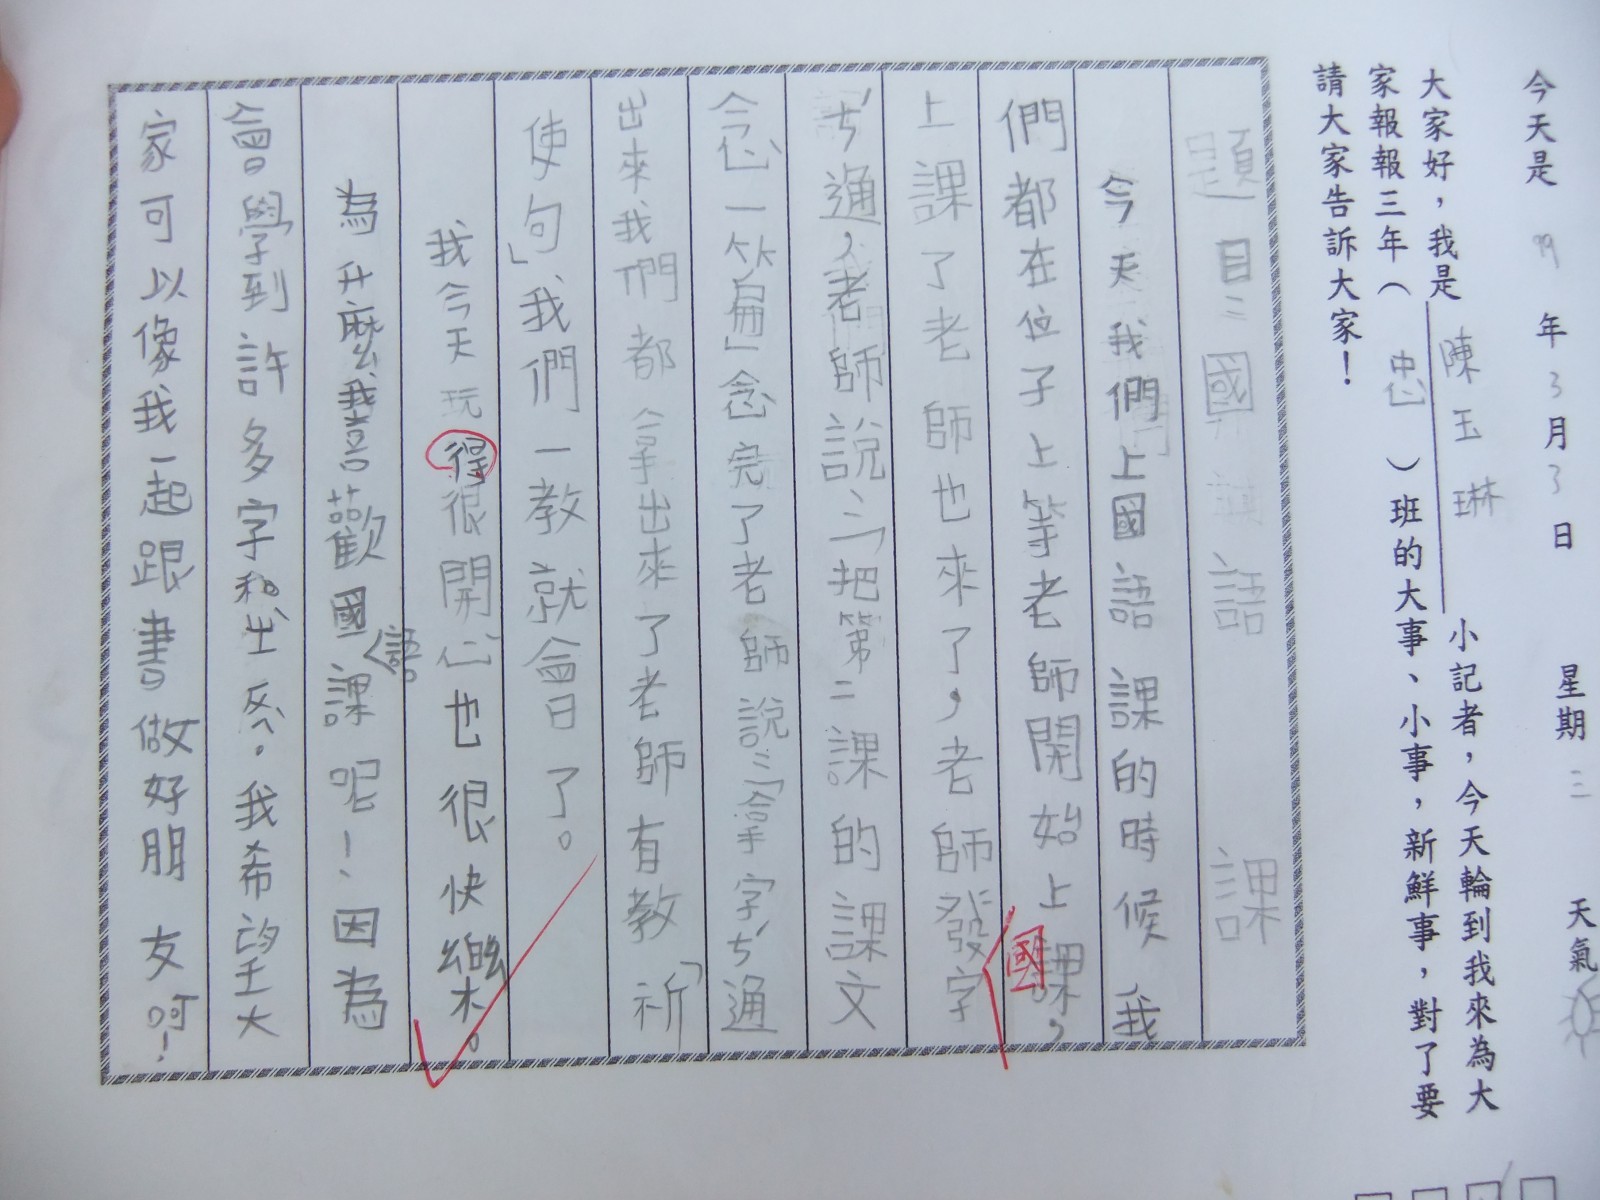 今天是 99 年 3 月 3 日 星期 三 天氣
大家好，我是 陳玉琳 小記者，今天輪到我來為大
家報報三年（ 忠 ）班的大事、小事，新鮮事，對了要
請大家告訴大家！
題目：國語課
今天我們上國語課的時候我
們都在位子上等老師開始上國課，
上課了老師也來了，老師發字
ㄘˊ通，老師說：「把第二課的課文
念一篇」念完了老師說：「拿字ㄘˊ通
出來我們都拿出來了老師有教「祈
使句」我們一教就會了。
我今天玩得很開心也很快樂。
為什麼我喜歡國語課呢！、因為
會學到許多字和出反。我希望大
家可以像我一起跟書做好朋友呵！